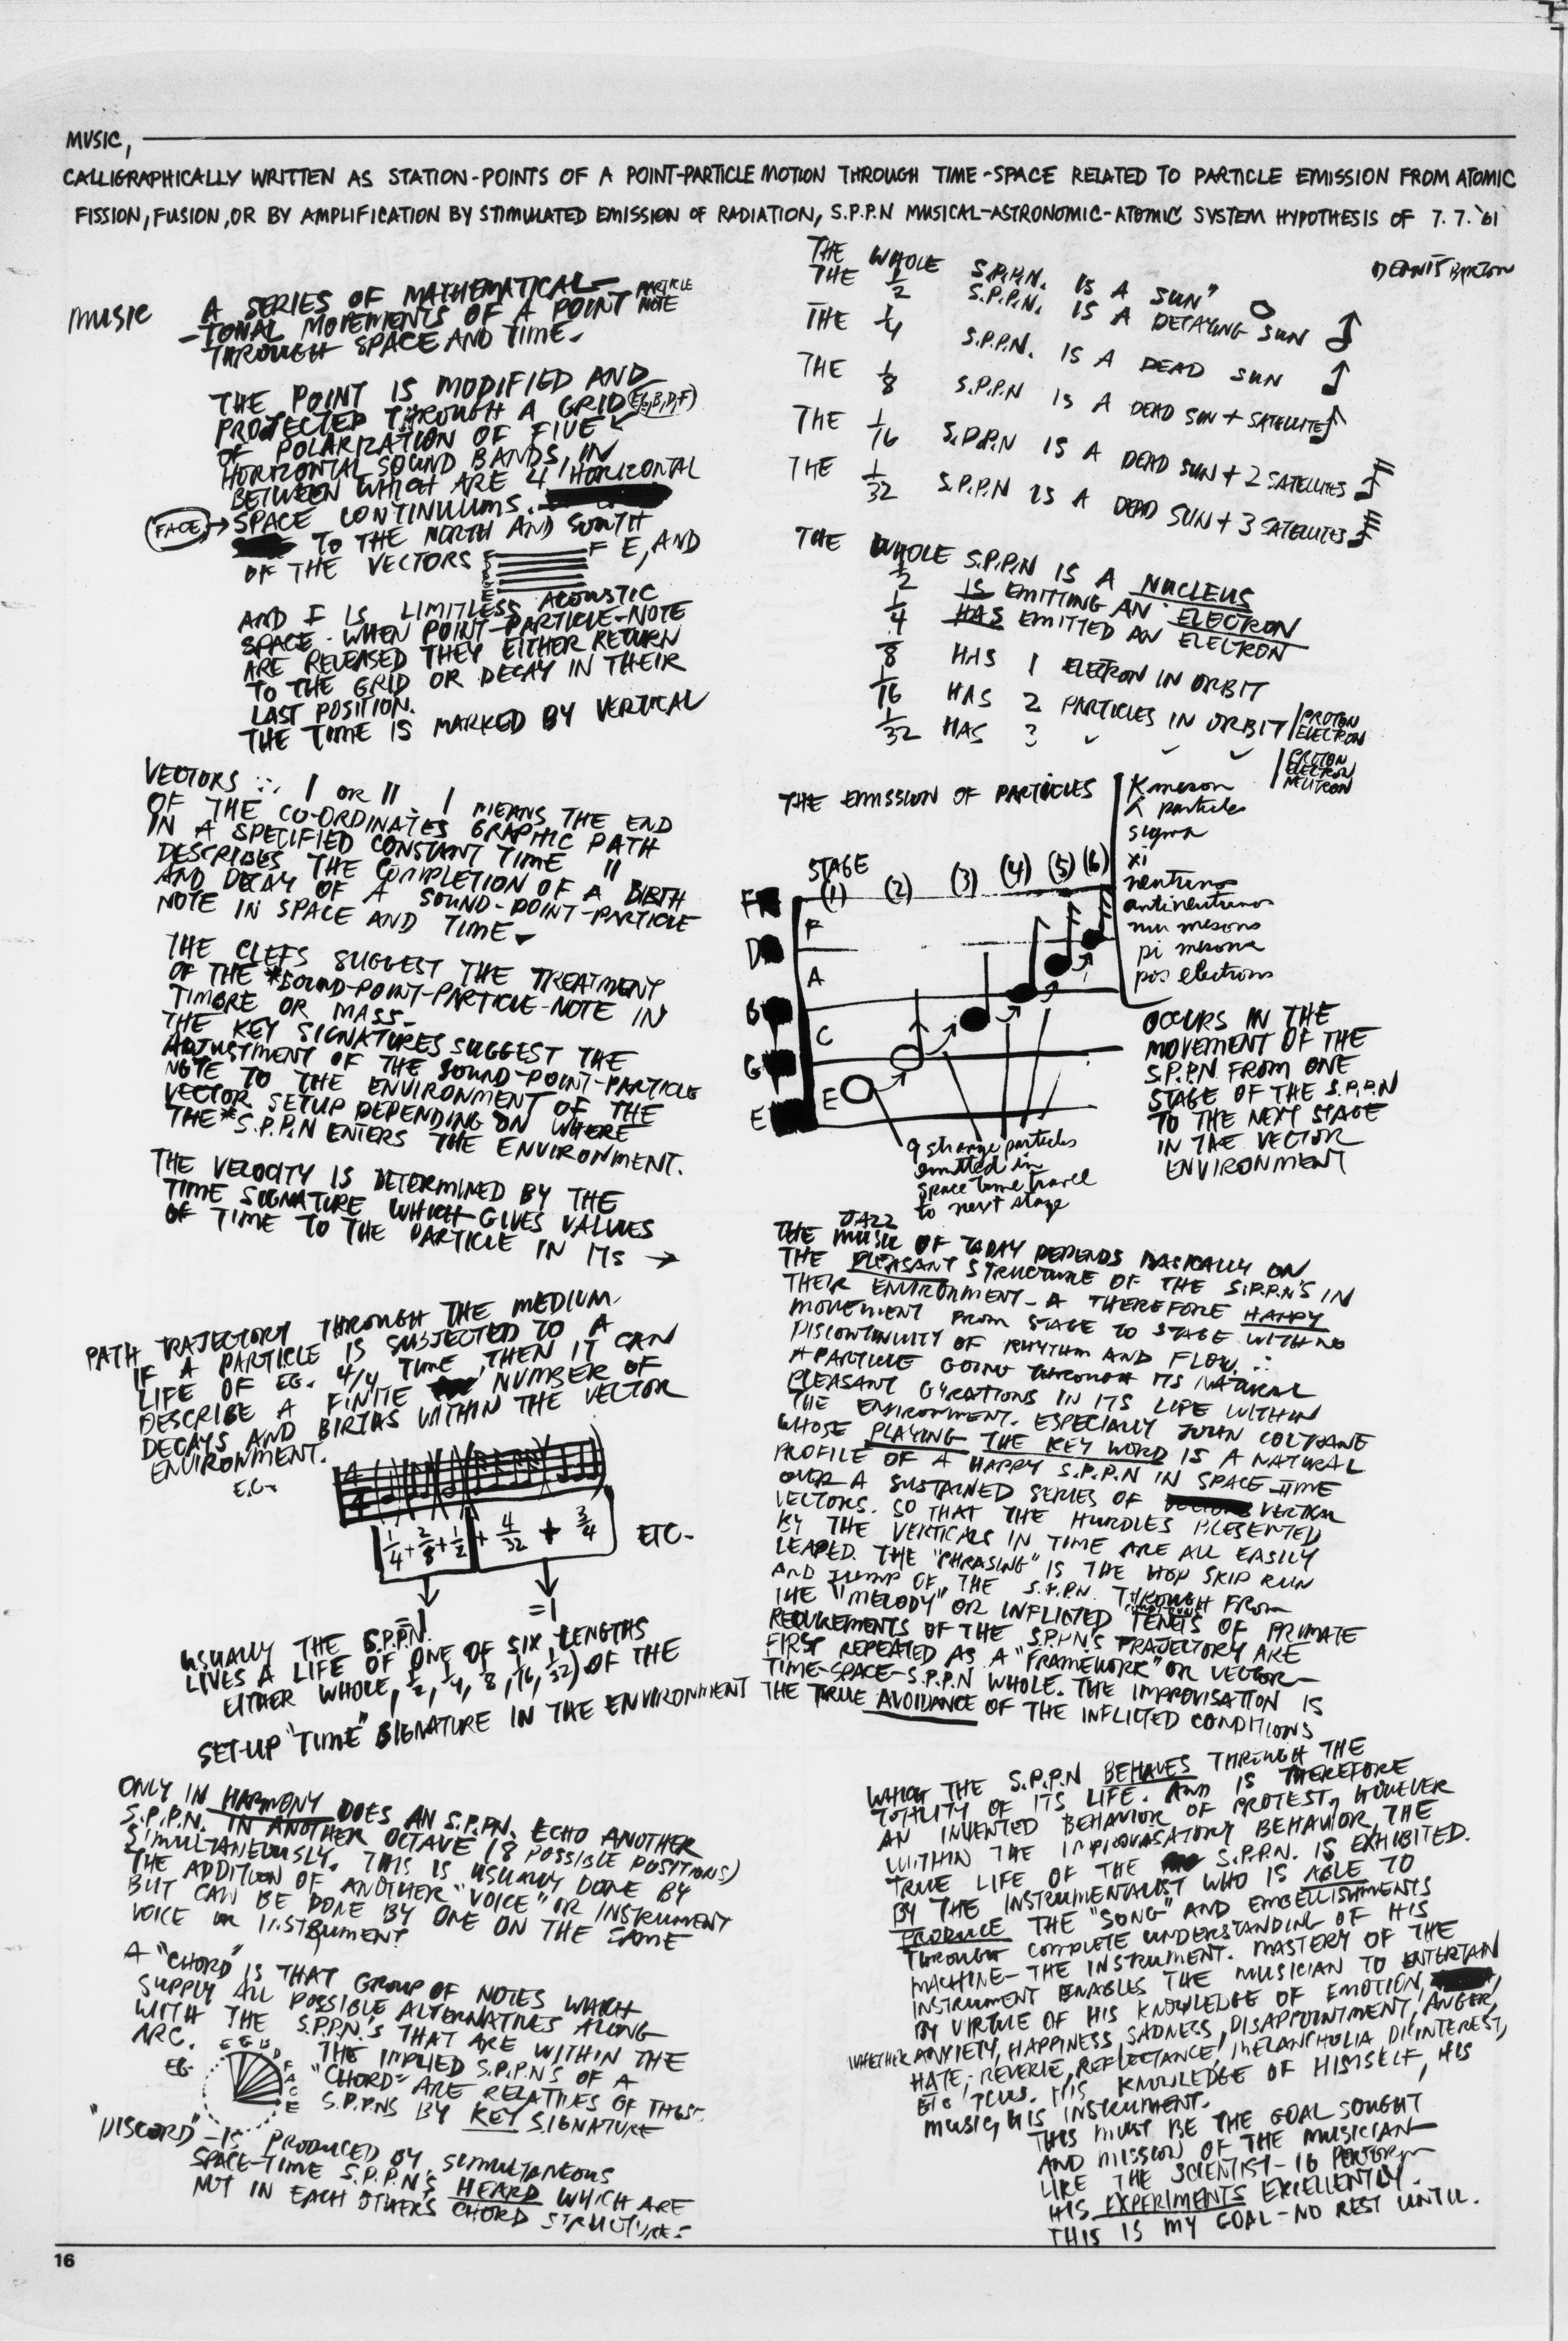 MUSIC,
CALLIGRAPHICALLY WRITTEN AS STATION-POINTS OF A POINT-PARTICLE MOTION THROUGH TIME-SPACE RELATED TO PARTICLE EMISSION FROM ATOMIC
FISSION, FUSION, OR BY AMPLIFICATION BY STIMULATED EMISSION OF RADIATION, S.P.P.N MUSICAL-ASTRONOMIC-ATOMIC SYSTEM HYPOTHESIS OF 7.7.'61
MUSIC
A SERIES OF MATHEMATICAL-
-TONAL MOVEMENTS OF A POINT PARTICLE NOTE
THROUGH SPACE AND TIME.
THE POINT IS MODIFIED AND
PROJECTED THROUGH A GRID (E,G,B,D,F)
OF POLARIZATION OF FIVE
HORIZONTAL SOUND BANDS, IN
BETWEEN WHICH ARE 4 HORIZONTAL
(FACE) → SPACE CONTINUUMS.
TO THE NORTH AND SOUTH
OF THE VECTORS F E, AND
E
AND F IS LIMITLESS ACOUSTIC
SPACE. WHEN POINT-PARTICLE-NOTE
ARE RELEASED THEY EITHER RETURN
TO THE GRID OR DECAY IN THEIR
LAST POSITION.
THE TIME IS MARKED BY VERTICAL
VECTORS ∴ | OR || | MEANS THE END
OF THE CO-ORDINATES GRAPHIC PATH
IN A SPECIFIED CONSTANT TIME ||
DESCRIBES THE COMPLETION OF A BIRTH
AND DECAY OF A SOUND-POINT-PARTICLE
NOTE IN SPACE AND TIME.
THE CLEFS SUGGEST THE TREATMENT
OF THE *SOUND-POINT-PARTICLE-NOTE IN
TIMBRE OR MASS.
THE KEY SIGNATURES SUGGEST THE
ADJUSTMENT OF THE SOUND-POINT-PARTICLE
NOTE TO THE ENVIRONMENT OF THE
VECTOR SETUP DEPENDING ON WHERE
THE *S.P.P.N ENTERS THE ENVIRONMENT.
THE VELOCITY IS DETERMINED BY THE
TIME SIGNATURE WHICH GIVES VALUES
OF TIME TO THE PARTICLE IN ITS →
PATH TRAJECTORY THROUGH THE MEDIUM.
IF A PARTICLE IS SUBJECTED TO A
LIFE OF EG. 4/4 TIME, THEN IT CAN
DESCRIBE A FINITE NUMBER OF
DECAYS AND BIRTHS WITHIN THE VECTOR
ENVIRONMENT.
E.G.
4
4
1/4 + 2/8 + 1/2 + 4/32 + 3/4 ETC-
=1 =1
USUALLY THE S.P.P.N.
LIVES A LIFE OF ONE OF SIX LENGTHS
EITHER WHOLE, 1/2, 1/4, 1/8, 1/16, 1/32) OF THE
SET-UP "TIME" SIGNATURE IN THE ENVIRONMENT
ONLY IN HARMONY DOES AN S.P.P.N. ECHO ANOTHER
S.P.P.N. IN ANOTHER OCTAVE (8 POSSIBLE POSITIONS)
SIMULTANEOUSLY. THIS IS USUALLY DONE BY
THE ADDITION OF ANOTHER "VOICE" OR INSTRUMENT
BUT CAN BE DONE BY ONE ON THE SAME
VOICE OR INSTRUMENT
A "CHORD" IS THAT GROUP OF NOTES WHICH
SUPPLY ALL POSSIBLE ALTERNATIVES ALONG
WITH THE S.P.P.N.'S THAT ARE WITHIN THE
ARC. THE IMPLIED S.P.P.N'S OF A
EG. E G B D F A C E "CHORD" ARE RELATIVES OF THESE
S.P.P.N'S BY KEY SIGNATURE
"DISCORD" - IS PRODUCED BY SIMULTANEOUS
SPACE-TIME S.P.P.N'S HEARD WHICH ARE
NOT IN EACH OTHERS CHORD STRUCTURE-
THE WHOLE S.P.P.N. IS A SUN"
THE 1/2 S.P.P.N. IS A DECAYING SUN
THE 1/4 S.P.P.N. IS A DEAD SUN
THE 1/8 S.P.P.N IS A DEAD SUN + SATELLITE
THE 1/16 S.P.P.N IS A DEAD SUN + 2 SATELLITES
THE 1/32 S.P.P.N IS A DEAD SUN + 3 SATELLITES
DENNIS BARTON
THE WHOLE S.P.P.N IS A NUCLEUS
1/2 IS EMITTING AN ELECTRON
1/4 HAS EMITTED AN ELECTRON
1/8 HAS 1 ELECTRON IN ORBIT
1/16 HAS 2 PARTICLES IN ORBIT / PROTON ELECTRON
1/32 HAS 3 / PROTON ELECTRON NEUTRON
THE EMISSION OF PARTICLES
K meson
particle
sigma
xi
neutrino
antineutrinos
mu mesons
pi mesons
pos electrons
STAGE
(1) (2) (3) (4) (5) (6)
F
F
D
A
B
C
G
E
E
9 strange particles
emitted in
space time travel
to next stage
OCCURS IN THE
MOVEMENT OF THE
S.P.P.N FROM ONE
STAGE OF THE S.P.P.N
TO THE NEXT STAGE
IN THE VECTOR
ENVIRONMENT
JAZZ
THE MUSIC OF TODAY DEPENDS BASICALLY ON
THE PLEASANT STRUCTURE OF THE S.P.P.N'S IN
THEIR ENVIRONMENT - A THEREFORE HAPPY
MOVEMENT FROM STAGE TO STAGE WITH NO
DISCONTINUITY OF RHYTHM AND FLOW. ∴
A PARTICLE GOING THROUGH ITS NATURAL
PLEASANT GYRATIONS IN ITS LIFE WITHIN
THE ENVIRONMENT. ESPECIALLY JOHN COLTRANE
WHOSE PLAYING THE KEY WORD IS A NATURAL
PROFILE OF A HAPPY S.P.P.N IN SPACE-TIME
OVER A SUSTAINED SERIES OF VERTICAL
VECTORS. SO THAT THE HURDLES PRESENTED
BY THE VERTICALS IN TIME ARE ALL EASILY
LEAPED. THE "PHRASING" IS THE HOP SKIP RUN
AND JUMP OF THE S.P.P.N. THROUGH FROM
THE "MELODY" OR INFLICTED TENETS OF PRIMATE
REQUIREMENTS OF THE S.P.P.N'S TRAJECTORY ARE
FIRST REPEATED AS A "FRAMEWORK" OR VECTOR-
TIME-SPACE-S.P.P.N WHOLE. THE IMPROVISATION IS
THE TRUE AVOIDANCE OF THE INFLICTED CONDITIONS
WHICH THE S.P.P.N BEHAVES THROUGH THE
TOTALITY OF ITS LIFE. AND IS THEREFORE
AN INVENTED BEHAVIOR OF PROTEST, HOWEVER
WITHIN THE IMPROVASATORY BEHAVIOR, THE
TRUE LIFE OF THE S.P.P.N. IS EXHIBITED.
BY THE INSTRUMENTALIST WHO IS ABLE TO
PRODUCE THE "SONG" AND EMBELLISHMENTS
THROUGH COMPLETE UNDERSTANDING OF HIS
MACHINE - THE INSTRUMENT. MASTERY OF THE
INSTRUMENT ENABLES THE MUSICIAN TO ENTERTAIN
BY VIRTUE OF HIS KNOWLEDGE OF EMOTION,
WHETHER ANXIETY, HAPPINESS, SADNESS, DISAPPOINTMENT, ANGER,
HATE, REVERIE, REFLECTANCE, MELANCHOLIA DISINTEREST,
ETC PLUS. HIS KNOWLEDGE OF HIMSELF, HIS
MUSIC, HIS INSTRUMENT.
THIS MUST BE THE GOAL SOUGHT
AND MISSION OF THE MUSICIAN
LIKE THE SCIENTIST - TO PERFORM
HIS EXPERIMENTS EXCELLENTLY.
THIS IS MY GOAL - NO REST UNTIL.
16